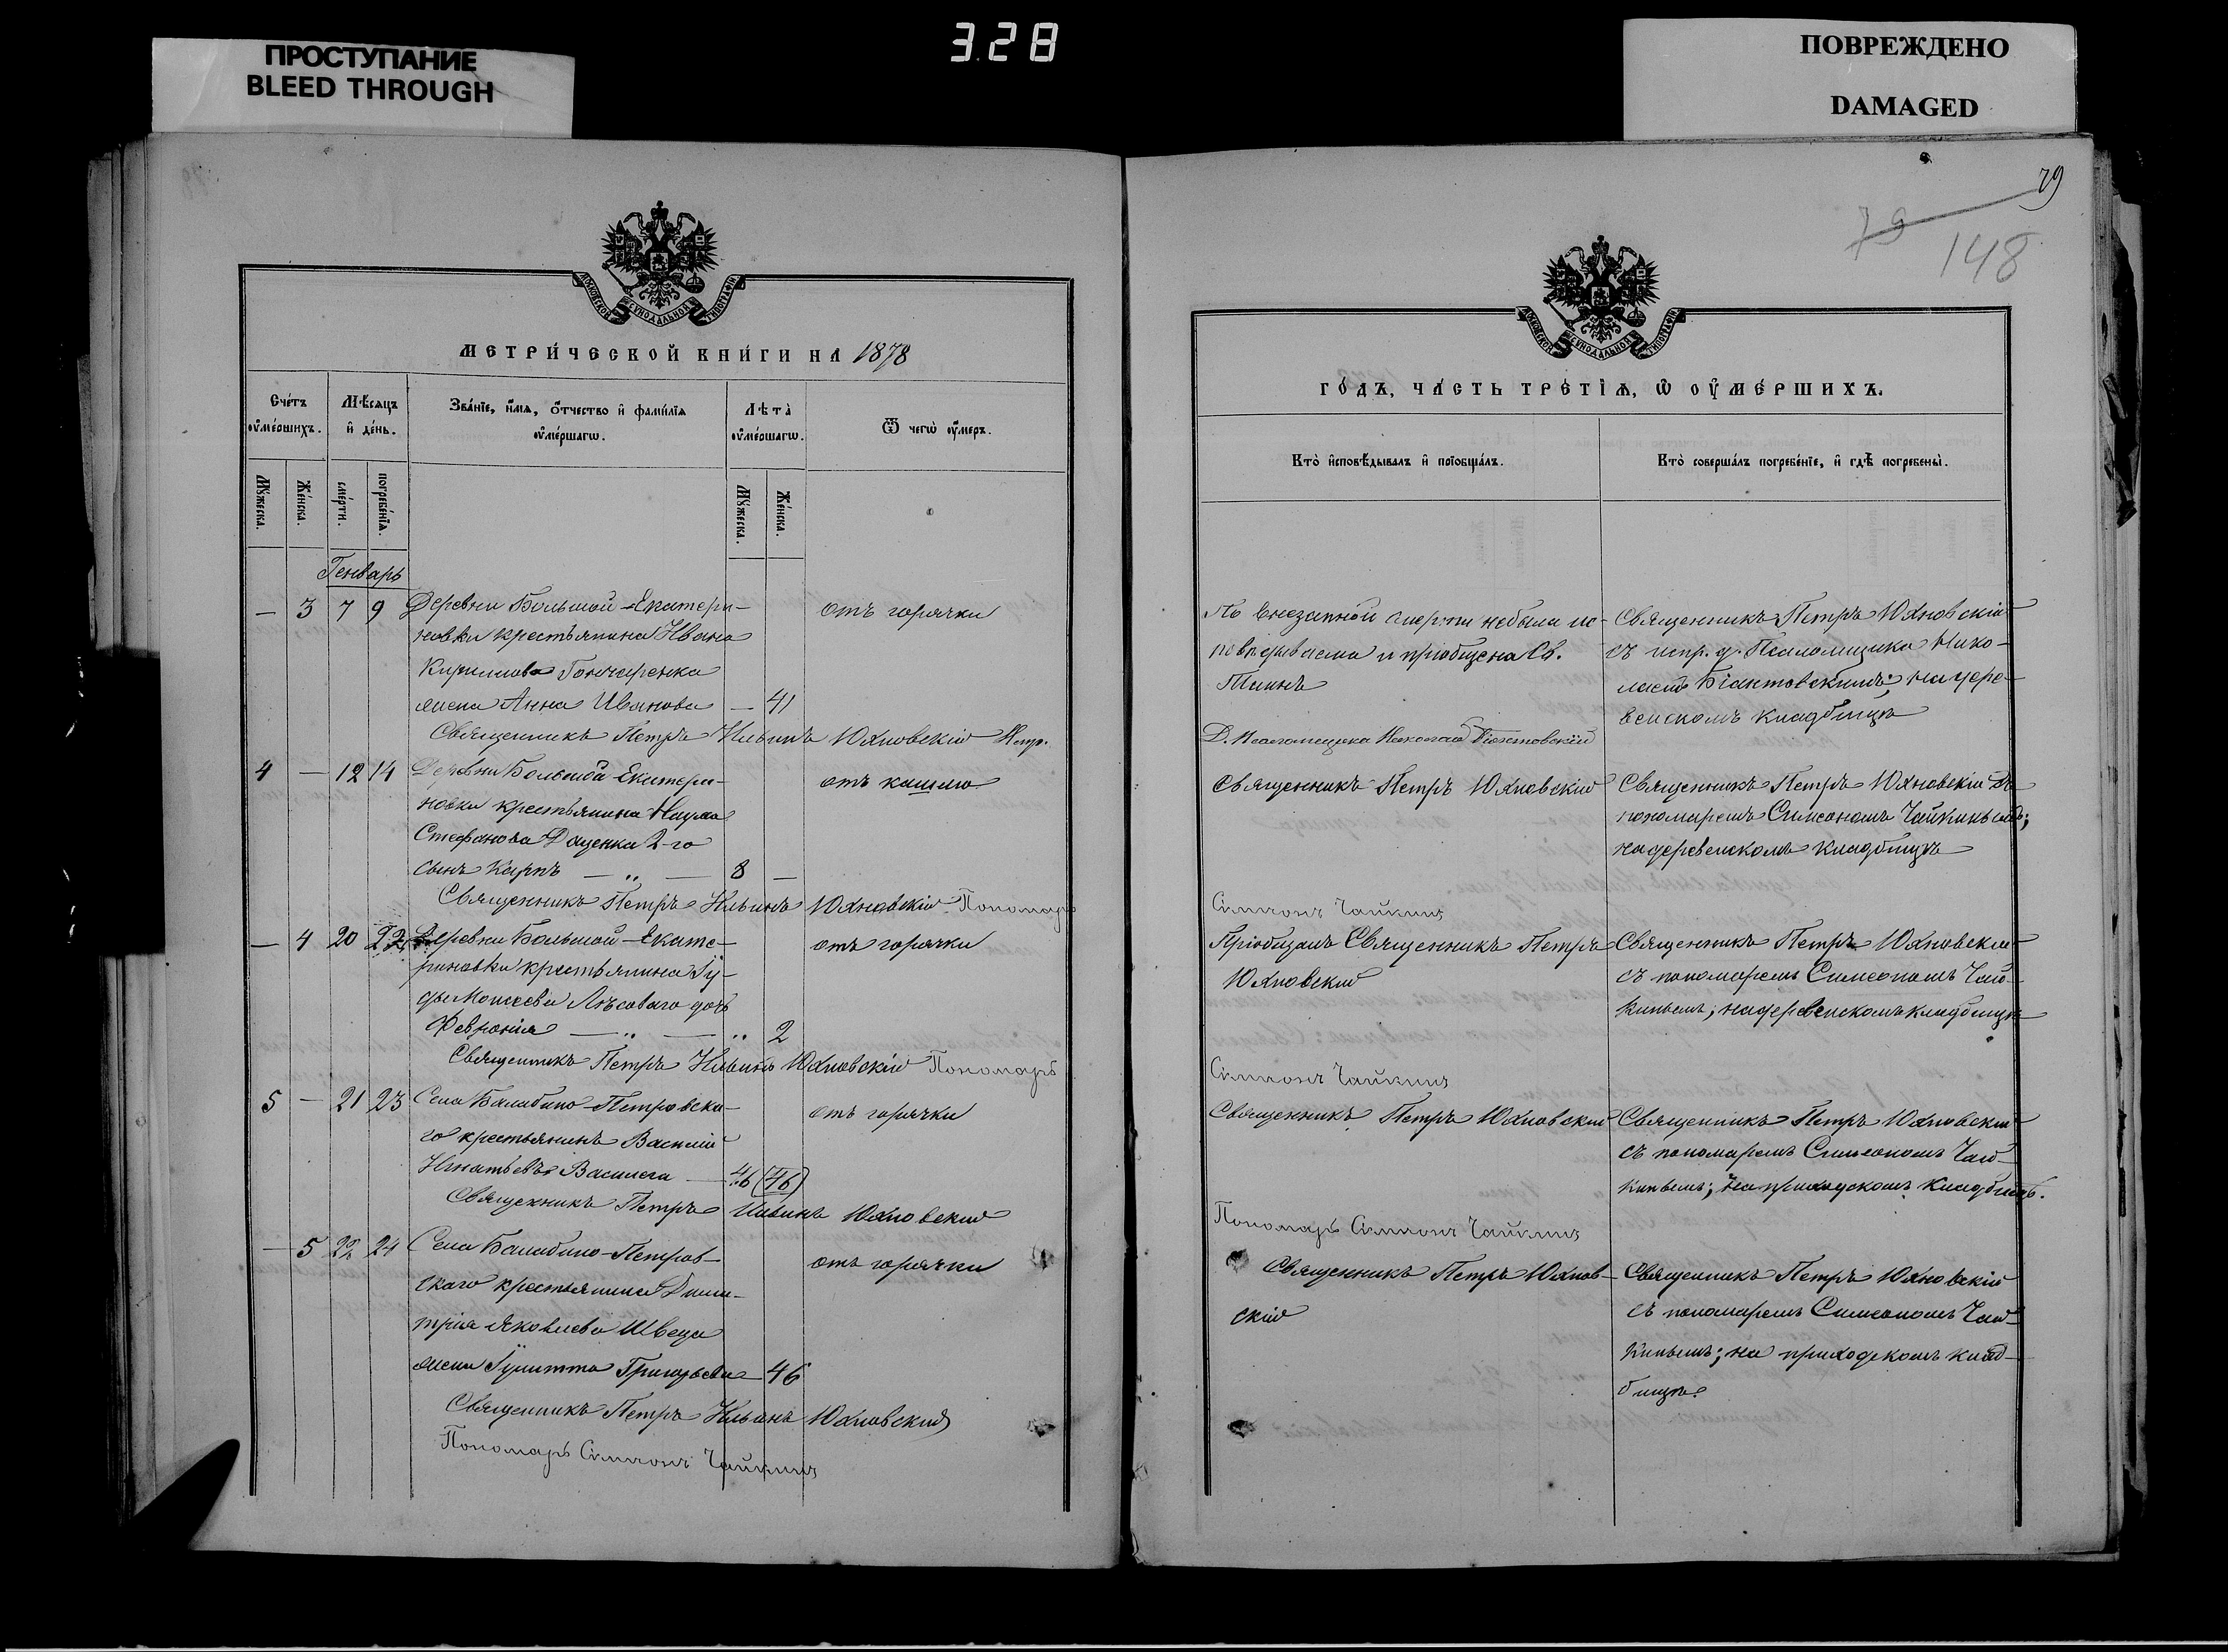 ПРОСТУПАНИЕ
BLEED THROUGH
328
ПОВРЕЖДЕНО
DAMAGED
МОСКОВСКОЙ СѴНОДАЛЬНОЙ ТИПОГРАФІИ
МЕТРИ́ЧЕСКОЙ КНИ́ГИ НА 1878
Сче́тъ ᲂу҆ме́ршихъ.
Мѣ́сяцъ и҆ де́нь.
Зва́нїе, и҆́мѧ, ѻ҆́тчество и҆ фами́лїѧ ᲂу҆ме́ршагѡ.
Лѣта̀ ᲂу҆ме́ршагѡ.
Ѿ чегѡ̀ ᲂу҆́меръ.
Мꙋ́жеска.
Же́нска.
сме́рти.
погребе́нїѧ.
Мꙋ́жеска.
Же́нска.
Генварь
— 3 7 9 Деревни Большой-Екатери-
новки крестьянина Ивана
Кириллова Гончаренка
жена Анна Иванова — 41
отъ горячки
Священникъ Петръ Ильинъ Юхновскій Испр.
4 — 12 14 Деревни Большой Екатери-
новки крестьянина Наума
Стефанова Даценка 2-го
сынъ Карпъ — „ — 8 —
отъ кашлю
Священникъ Петръ Ильинъ Юхновскій Пономарь
— 4 20 22 Деревни Большой-Екате-
риновки крестьянина Іу-
ды Моисеева Лѣсоваго дочь
Февронія — „ — „ 2
отъ горячки
Священникъ Петръ Ильинъ Юхновскій Пономарь
5 — 21 23 Села Балабино-Петровска-
го крестьянинъ Василій
Игнатьевъ — 46 (46)
отъ горячки
Священникъ Петръ Ильинъ Юхновскій
— 5 22 24 Села Балабино-Петров-
скаго крестьянина Дими-
трія Яковлева Швеца
жена Іулитта Григорьева — 46
отъ горячки
Священникъ Петръ Ильинъ Юхновскій
Пономарь Симеонъ Чайкинъ
79
79
148
МОСКОВСКОЙ СѴНОДАЛЬНОЙ ТИПОГРАФІИ
ГО́ДЪ, ЧА́СТЬ ТРЕ́ТЇѦ, Ѡ҆ ОУ҆МЕ́РШИХЪ.
Кто̀ и҆сповѣ́дывалъ и҆ прїѡбща́лъ.
Кто̀ соверша́лъ погребе́нїе, и҆ гдѣ̀ погребены̀.
По внезапной смерти небыла ис-
повѣдываема и пріобщена Св.
Таинъ
Священникъ Петръ Юхновскій
съ испр. д. Псаломщика Нико-
лаемъ ; на дере-
венскомъ кладбищѣ
Д. Псаломщика Николай
Священникъ Петръ Юхновскій
Священникъ Петръ Юхновскій съ
пономаремъ Симеономъ Чайкинымъ;
на деревенскомъ кладбищѣ
Симеонъ Чайкинъ
Пріобщалъ Священникъ Петръ
Юхновскій
Священникъ Петръ Юхновскій
съ пономаремъ Симеономъ Чай-
кинымъ; на деревенскомъ кладбищѣ
Симеонъ Чайкинъ
Священникъ Петръ Юхновскій
Священникъ Петръ Юхновскій
съ пономаремъ Симеономъ Чай-
кинымъ; на приходскомъ кладбищѣ.
Пономарь Симеонъ Чайкинъ
Священникъ Петръ Юхнов-
скій
Священникъ Петръ Юхновскій
съ пономаремъ Симеономъ Чай-
кинымъ; на приходскомъ клад-
бищѣ.